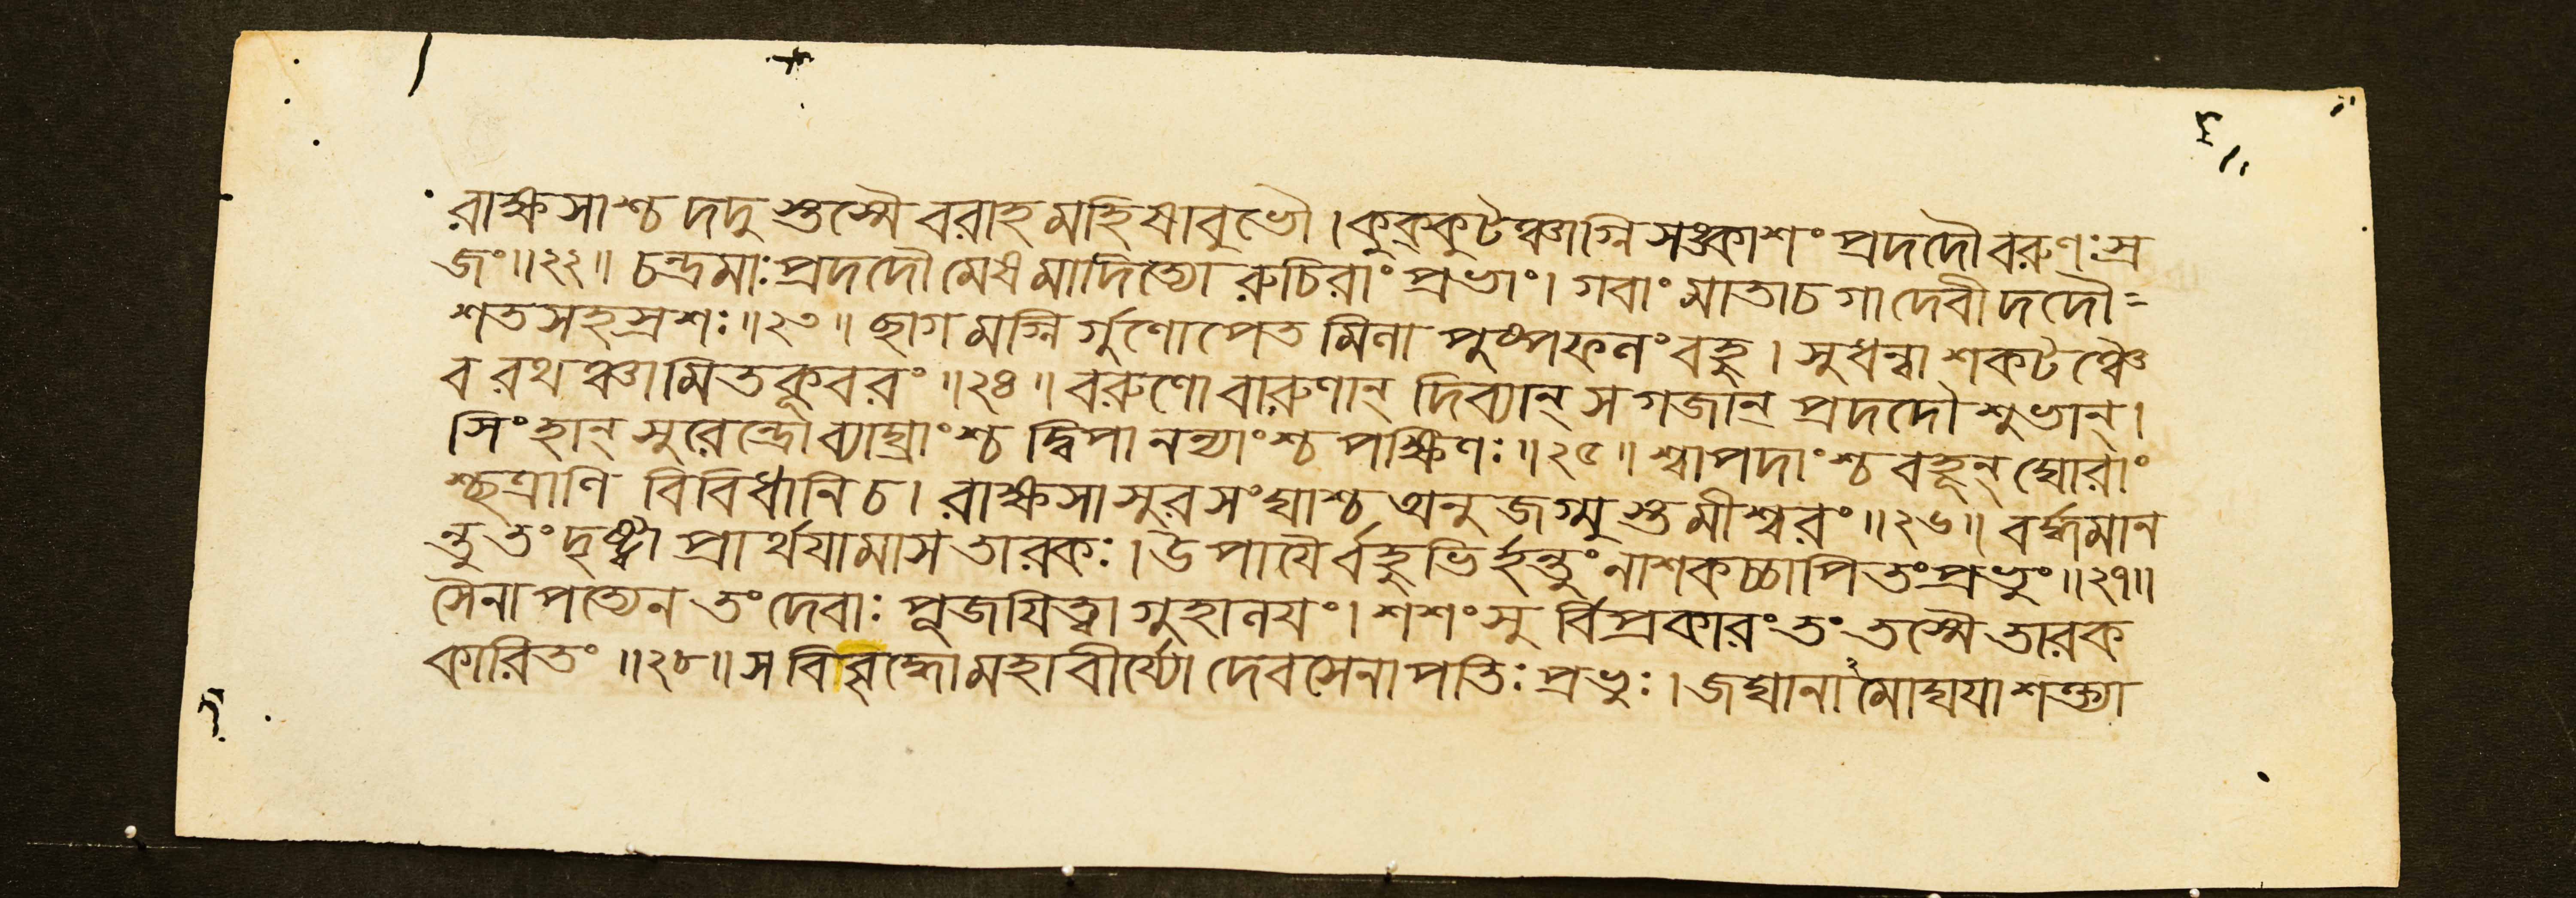 রাক্ষসাশ্চ দদুস্তস্মৈ বরাহমহিষাবুভৌ । কুক্কুটঞ্চাগ্নিসঙ্কাশং প্রদদৌ বরুণঃ স্র
জং ॥ ২২ ॥ চন্দ্রমাঃ প্রদদৌ মেষমাদিত্যো রুচিরাং প্রভাং । গবাং মাতা চ গা দেবী দদৌ =
শতসহস্রশঃ ॥ ২৩ ॥ ছাগমগ্নির্গুণোপেতমিলা পুষ্পফলং বহু । সুধন্বা শকটঞ্চৈ
ব রথঞ্চামিতকূবরং ॥ ২৪ ॥ বরুণো বারুণান্ দিব্যান্ সগজান্ প্রদদৌ শুভান্ ।
সিংহান্ সুরেন্দ্রো ব্যাঘ্রাংশ্চ দ্বিপানন্যাংশ্চ পক্ষিণঃ ॥ ২৫ ॥ শ্বাপদাংশ্চ বহূন্ ঘোরাং
শ্ছত্রাণি বিবিধানি চ । রাক্ষসাসুরসংঘাশ্চ অনুজগ্মুস্তমীশ্বরং ॥ ২৬ ॥ বর্দ্ধমান
ন্তু তং দৃষ্ট্বা প্রার্থযামাস তারকঃ । উপাযৈর্বহুভির্হন্তুং নাশকচ্চাপি তং প্রভুং ॥ ২৭ ॥
সৈনাপত্যেন তং দেবাঃ পূজযিত্বা গুহালযং । শশংসুর্বিপ্রকারং তং তস্মৈ তারক
কারিতং ॥ ২৮ ॥ স বিবৃদ্ধো মহাবীর্য্যো দেবসেনাপতিঃ প্রভুঃ । জঘানামোঘযা শক্ত্যা